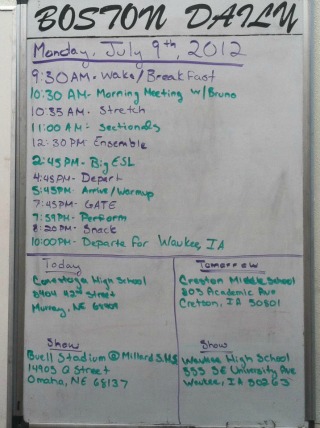 BOSTON DAILY
Monday, July 9th, 2012
9:30AM - Wake/Breakfast
10:30 AM - Morning Meeting w/Bruno
10:55 AM - Stretch
11:00 AM - Sectionals
12:30 PM Ensemble
2:45PM - Big ESL
4:45PM - Depart
5:45PM - Arrive/Warmup
7:45PM - GATE
7:59PM - Perform
8:20PM - Snack
10:00PM - Departe for Waukee, IA
Today
Conestoga High School
8404 42nd Street
Murray, NE
Show
Buell Stadium @ Millard S.H.S
14905 Q Street
Omaha, NE 68137
Tomorrow
Creston Middle School
805 Academic Ave
Cretson, IA 50801
Show
Waukee High School
555 SE University Ave
Waukee, IA 50263